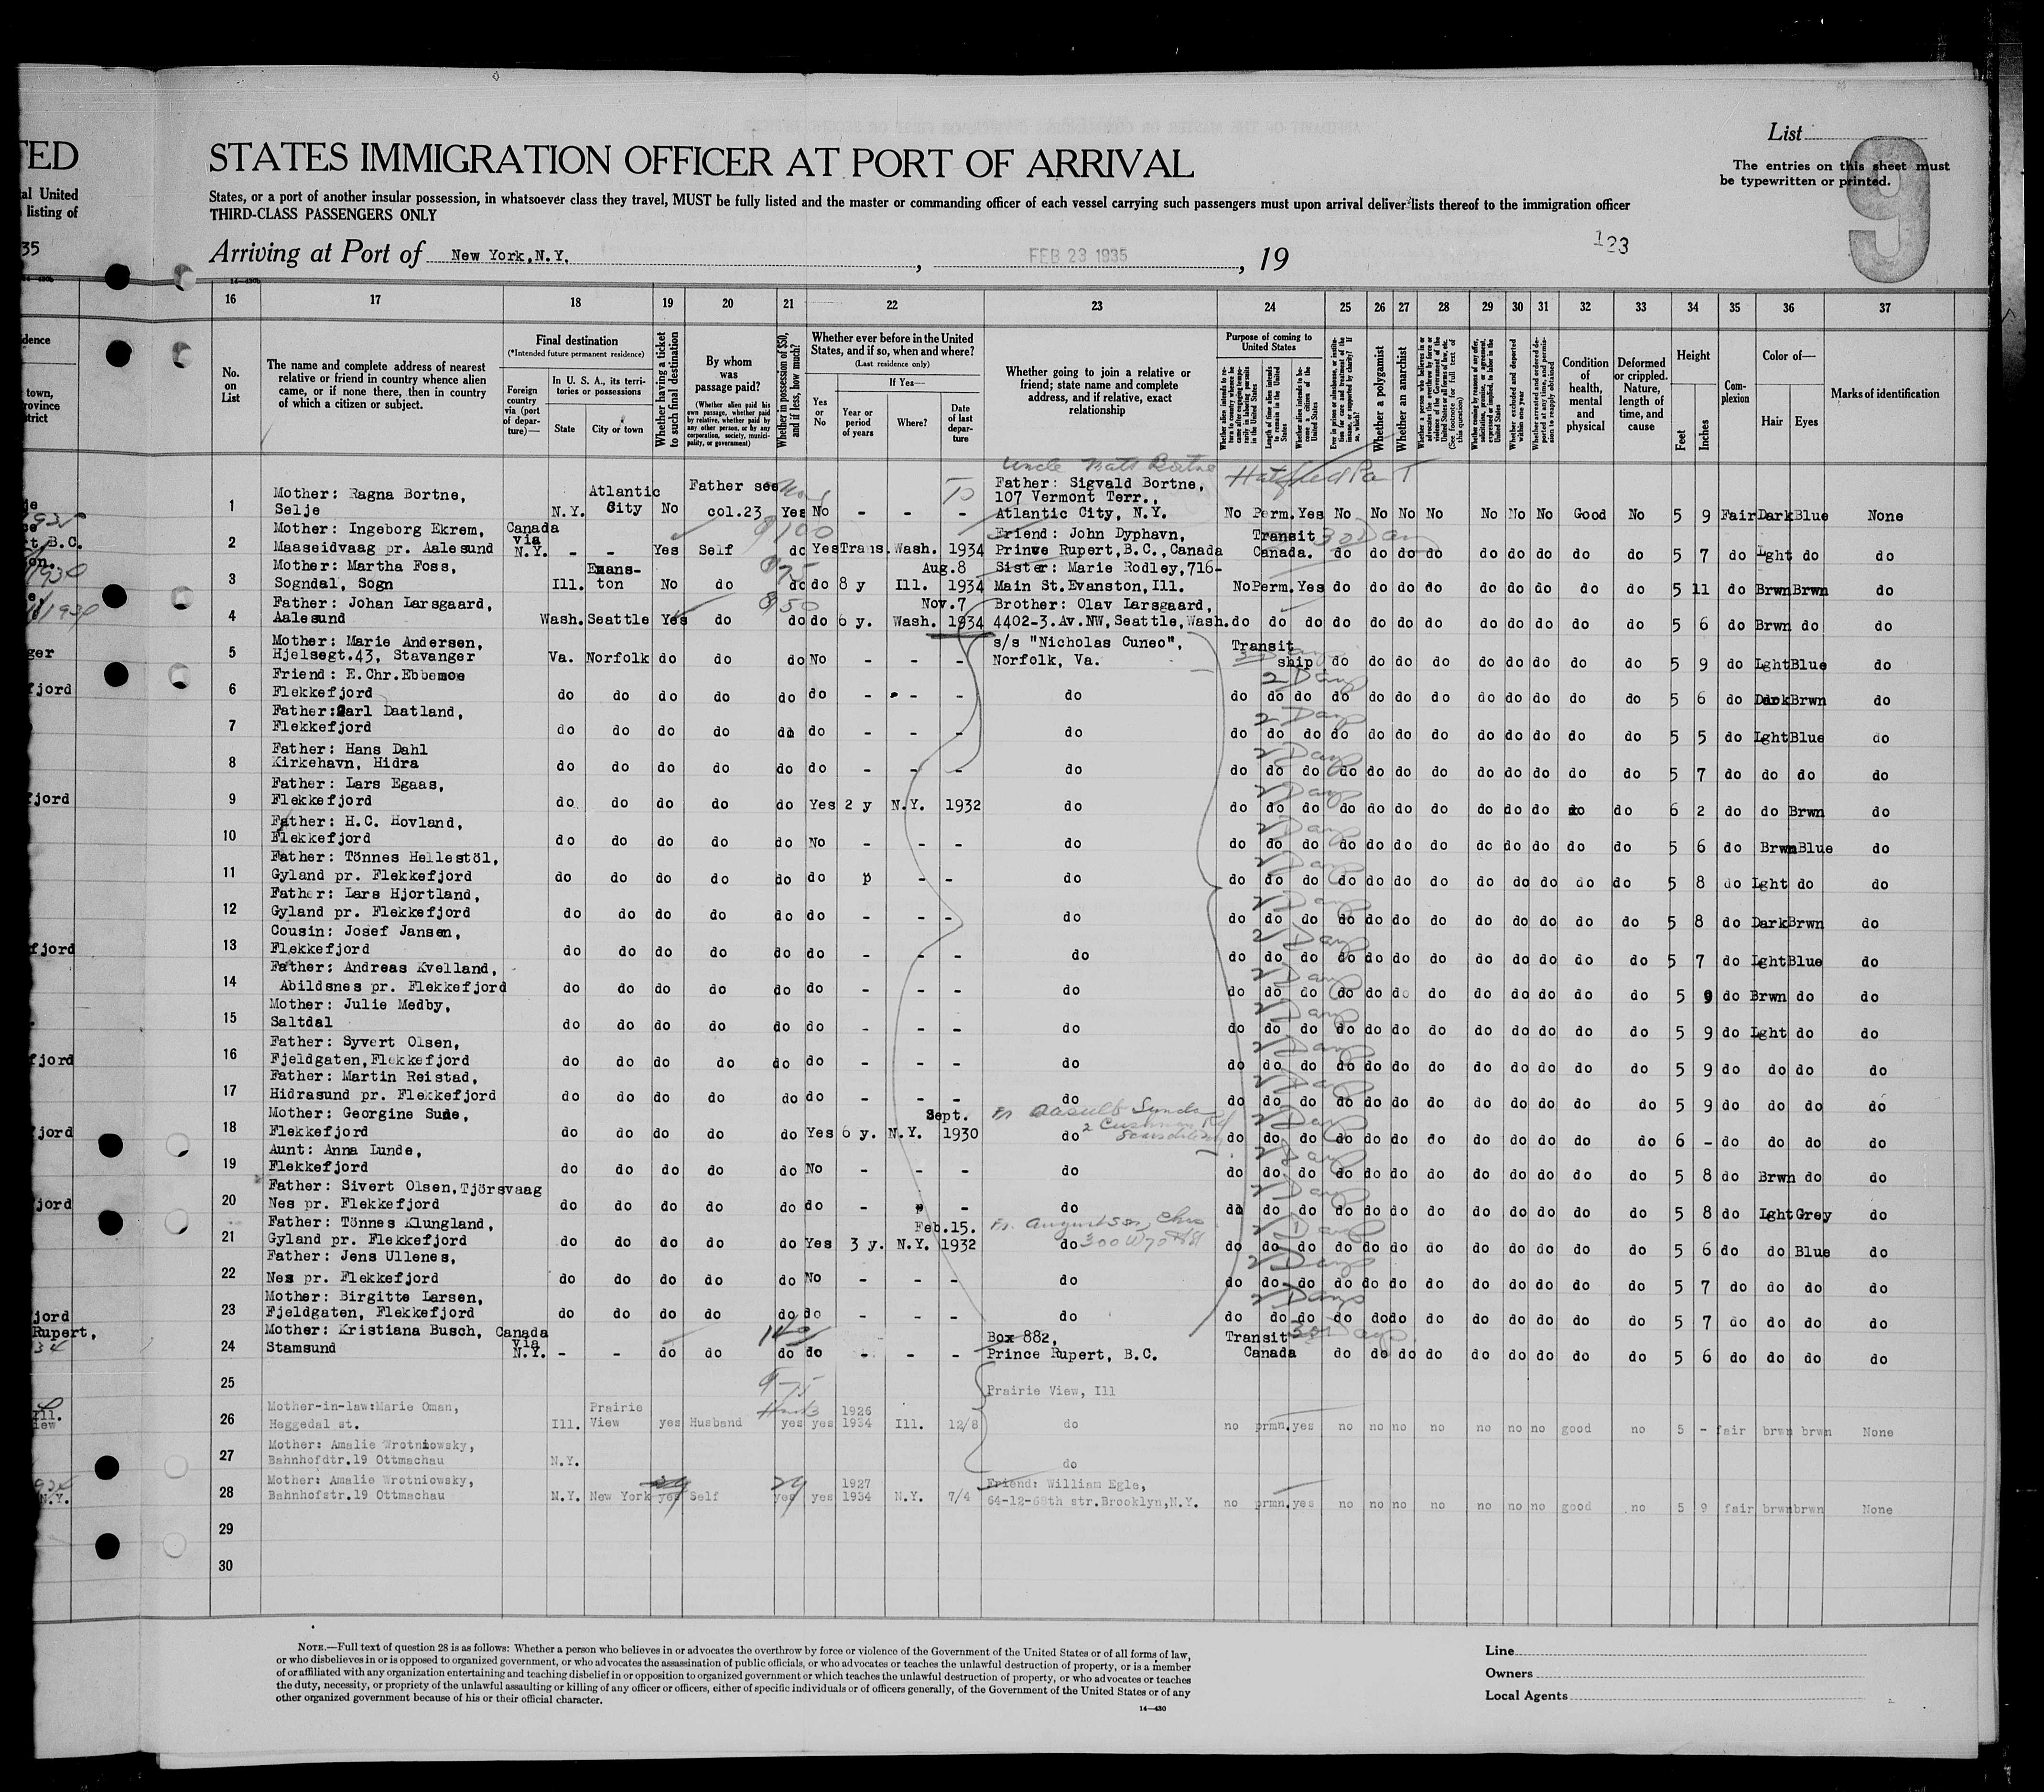 TED
al United
listing of
35
List
9
The entries on this sheet must
be typewritten or printed.
STATES IMMIGRATION OFFICER AT PORT OF ARRIVAL
States, or a port of another insular possession, in whatsoever class they travel, MUST be fully listed and the master or commanding officer of each vessel carrying such passengers must upon arrival deliver lists thereof to the immigration officer
THIRD-CLASS PASSENGERS ONLY
Arriving at Port of New York, N.Y. , FEB 23 1935 , 19
123
16 17 18 19 20 21 22 23 24 25 26 27 28 29 30 31 32 33 34 35 36 37
No. on List
The name and complete address of nearest relative or friend in country whence alien came, or if none there, then in country of which a citizen or subject.
Final destination
(*Intended future permanent residence)
Foreign country via (port of departure)—
In U. S. A., its territories or possessions
State City or town
Whether having a ticket to such final destination
By whom was passage paid?
(Whether alien paid his own passage, whether paid by relative, whether paid by any other person, or by any corporation, society, municipality, or government)
Whether in possession of $50, and if less, how much?
Whether ever before in the United States, and if so, when and where?
(Last residence only)
Yes or No
If Yes—
Year or period of years Where? Date of last departure
Whether going to join a relative or friend; state name and complete address, and if relative, exact relationship
Purpose of coming to United States
Whether a polygamist
Whether an anarchist
Condition of health, mental and physical
Deformed or crippled. Nature, length of time, and cause
Height
Feet Inches
Complexion
Color of—
Hair Eyes
Marks of identification
1 Mother: Ragna Bortne, Selje N.Y. Atlantic City No Father see col.23 Yes No - - - Father: Sigvald Bortne, 107 Vermont Terr., Atlantic City, N.Y. No Perm. Yes No No No No No No No Good No 5 9 Fair Dark Blue None
2 Mother: Ingeborg Ekrem, Maaseidvaag pr. Aalesund Canada via N.Y. - - Yes Self do Yes Trans. Wash. 1934 Friend: John Dyphavn, Prince Rupert, B.C., Canada Transit Canada. 30 Days do do do do do do do do do 5 7 do Lght do do
3 Mother: Martha Foss, Sogndal, Sogn Ill. Evanston No do do do 8 y Ill. Aug.8 1934 Sister: Marie Rodley, 716- Main St. Evanston, Ill. No Perm. Yes do do do do do do do do do 5 11 do Brwn Brwn do
4 Father: Johan Larsgaard, Aalesund Wash. Seattle Yes do do do 6 y. Wash. Nov.7 1934 Brother: Olav Larsgaard, 4402-3. Av. NW, Seattle, Wash. do do do do do do do do do do do do 5 6 do Brwn do do
5 Mother: Marie Andersen, Hjelsegt.43, Stavanger Va. Norfolk do do do No - - - s/s "Nicholas Cuneo", Norfolk, Va. Transit ship do do do do do do do do do 5 9 do Lght Blue do
6 Friend: E.Chr.Ebbemoe Flekkefjord do do do do do do - - - do do do do do do do do do do do do do 5 6 do Dark Brwn do
7 Father: Carl Daatland, Flekkefjord do do do do do do - - - do do do do do do do do do do do do do 5 5 do Lght Blue do
8 Father: Hans Dahl Kirkehavn, Hidra do do do do do do - - - do do do do do do do do do do do do do 5 7 do do do do
9 Father: Lars Egaas, Flekkefjord do do do do do Yes 2 y N.Y. 1932 do do do do do do do do do do do do do 6 2 do do Brwn do
10 Father: H.C. Hovland, Flekkefjord do do do do do No - - - do do do do do do do do do do do do do 5 6 do Brwn Blue do
11 Father: Tönnes Hellestöl, Gyland pr. Flekkefjord do do do do do do - - do do do do do do do do do do do do do 5 8 do Lght do do
12 Father: Lars Hjortland, Gyland pr. Flekkefjord do do do do do do - - - do do do do do do do do do do do do do 5 8 do Dark Brwn do
13 Cousin: Josef Jansen, Flekkefjord do do do do do do - - - do do do do do do do do do do do do do 5 7 do Lght Blue do
14 Father: Andreas Kvelland, Abildsnes pr. Flekkefjord do do do do do do - - - do do do do do do do do do do do do do 5 9 do Brwn do do
15 Mother: Julie Medby, Saltdal do do do do do do - - - do do do do do do do do do do do do do 5 9 do Lght do do
16 Father: Syvert Olsen, Fjeldgaten, Flekkefjord do do do do do do - - - do do do do do do do do do do do do do 5 9 do do do do
17 Father: Martin Reistad, Hidrasund pr. Flekkefjord do do do do do do - - - do do do do do do do do do do do do do 5 9 do do do do
18 Mother: Georgine Sunde, Flekkefjord do do do do do Yes 6 y. N.Y. Sept. 1930 do do do do do do do do do do do do do 6 - do do do do
19 Aunt: Anna Lunde, Flekkefjord do do do do do No - - - do do do do do do do do do do do do do 5 8 do Brwn do do
20 Father: Sivert Olsen, Tjörsvaag Nes pr. Flekkefjord do do do do do do - - do do do do do do do do do do do do do 5 8 do Lght Grey do
21 Father: Tönnes Klungland, Gyland pr. Flekkefjord do do do do do Yes 3 y. N.Y. Feb.15. 1932 do do do do do do do do do do do do do 5 6 do do Blue do
22 Father: Jens Ullenes, Nes pr. Flekkefjord do do do do do No - - - do do do do do do do do do do do do do 5 7 do do do do
23 Mother: Birgitte Larsen, Fjeldgaten, Flekkefjord do do do do do do - - - do do do do do do do do do do do do do 5 7 do do do do
24 Mother: Kristiana Busch, Stamsund Canada via N.Y. - - do do do do - - - Box 882, Prince Rupert, B.C. Transit Canada do do do do do do do do do 5 6 do do do do
25 Prairie View, Ill
26 Mother-in-law: Marie Oman, Heggedal st. Ill. Prairie View yes Husband yes yes 1926 1934 Ill. 12/8 do no prmn. yes no no no no no no no good no 5 - fair brwn brwn None
27 Mother: Amalie Wrotniowsky, Bahnhofdtr.19 Ottmachau N.Y. do
28 Mother: Amalie Wrotniowsky, Bahnhofstr.19 Ottmachau N.Y. New York yes Self yes yes 1927 1934 N.Y. 7/4 Friend: William Egle, 64-12-68th str. Brooklyn, N.Y. no prmn. yes no no no no no no no good no 5 9 fair brwn brwn None
29
30
NOTE.—Full text of question 28 is as follows: Whether a person who believes in or advocates the overthrow by force or violence of the Government of the United States or of all forms of law,
or who disbelieves in or is opposed to organized government, or who advocates the assassination of public officials, or who advocates or teaches the unlawful destruction of property, or is a member
of or affiliated with any organization entertaining and teaching disbelief in or opposition to organized government or which teaches the unlawful destruction of property, or who advocates or teaches
the duty, necessity, or propriety of the unlawful assaulting or killing of any officer or officers, either of specific individuals or of officers generally, of the Government of the United States or of any
other organized government because of his or their official character.
14—430
Line
Owners
Local Agents